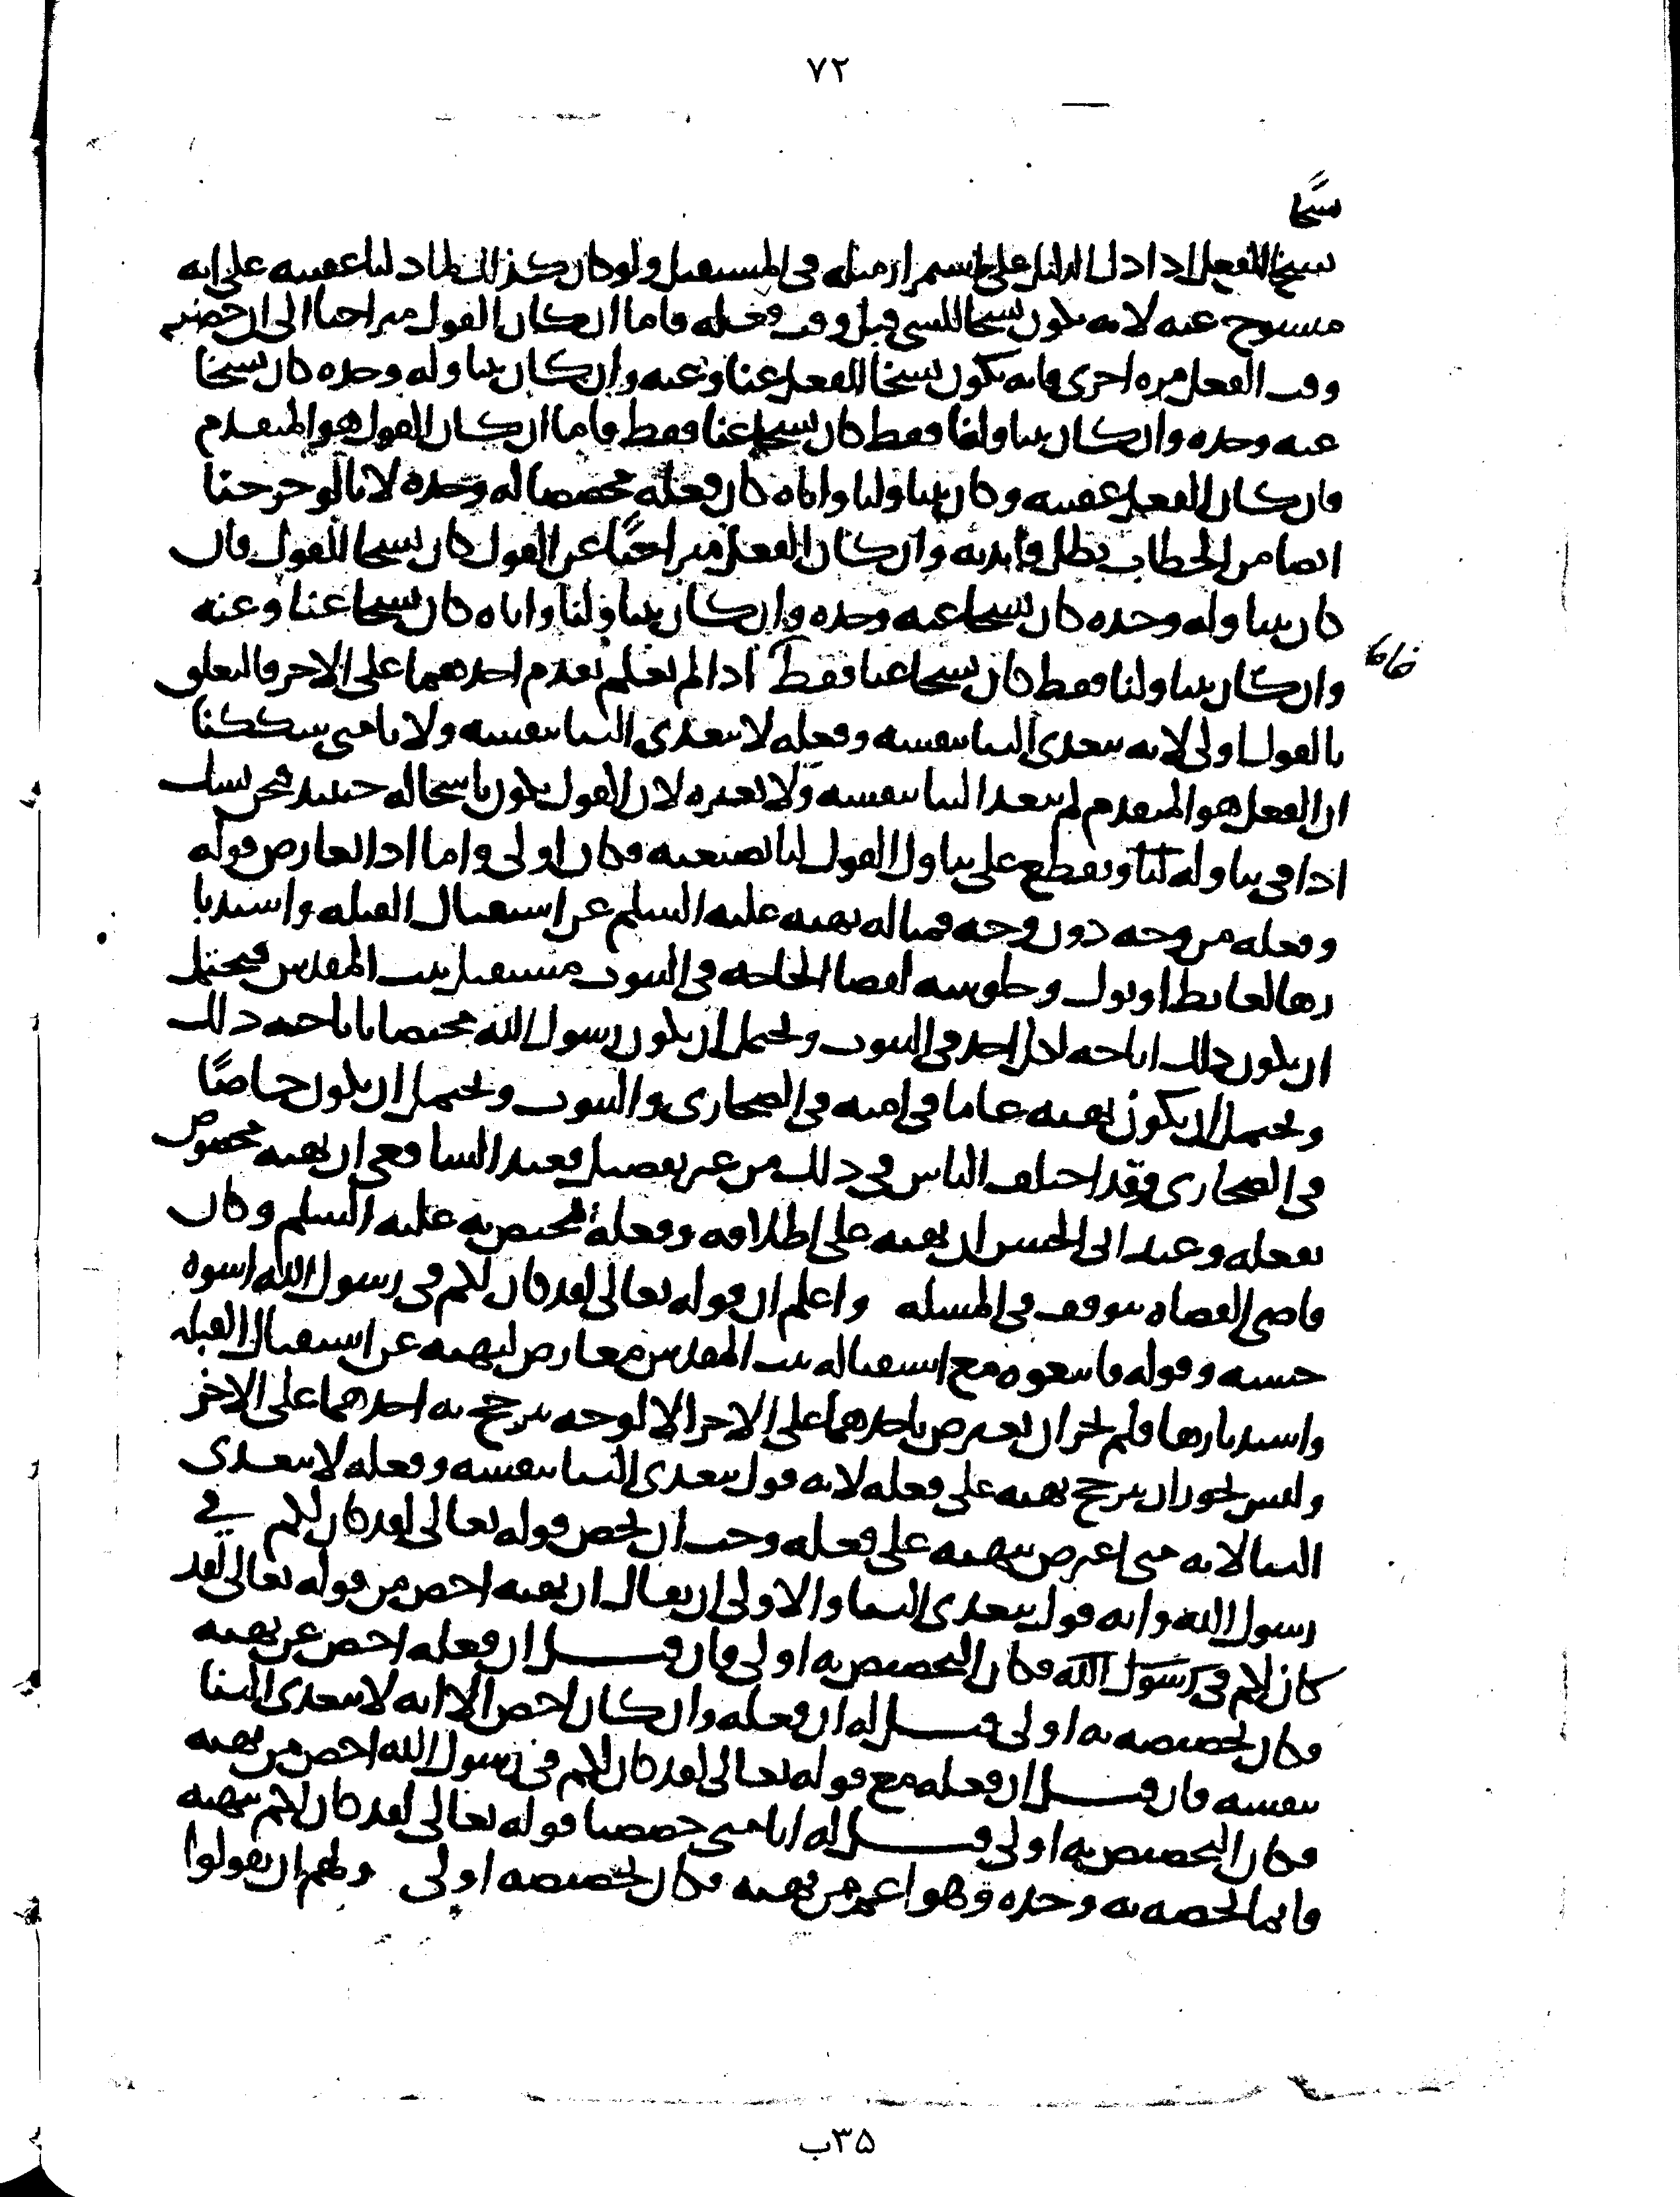 ٧٢
نسخًا
نسخا للفعل اذا دل الدليل على استمرار مثله في المستقبل ولو كان كذلك لما دلنا عقيبه على انه
منسوخ عنه لانه يكون نسخا للشي قبل وقت فعله فاما ان كان القول متراخيا الى ان حضر
وقت الفعل مره اخرى فانه يكون نسخا للفعل عنا وعنه وان كان يتناوله وحده كان نسخا
عنه وحده وان كان يتناولنا فقط كان نسخا عنا فقط فاما ان كان القول هو المتقدم
فان كان الفعل عقيبه وكان يتناولنا واياه كان فعله مخصصا له وحده لانا لو خرجنا
ايضا من الخطاب بطل فايدته وان كان الفعل متراخيًا عن القول كان نسخا للقول فان
كان يتناوله وحده كان نسخا عنه وحده وان كان يتناولنا واياه كان نسخا عنا وعنه
وان كان يتناولنا فقط كان نسخا عنا فقط اذا لم نعلم تقدم احدهما على الاخر فالتعلق
فاما
بالقول اولى لانه يتعدى الينا بنفسه وفعله لا يتعدى الينا بنفسه ولانا متى شككنا
ان الفعل هو المتقدم لم يتعد الينا بنفسه ولا بغيره لان القول يكون ناسخا له حينيذ فنحن نشك
اذا في تناوله لنا ونقطع على تناول القول لنا بصيغته فكان اولى واما اذا تعارض قوله
وفعله من وجه دون وجه فمثاله نهيه عليه السلم عن استقبال القبله واستدبا
رها لغايط او بول وجلوسه لقضا الحاجه في البيوت مستقبل بيت المقدس فيحتمل
ان يكون ذلك اباحه لكل احد في البيوت ويحتمل ان يكون رسول الله مختصا باباحه ذلك
ويحتمل ان يكون نهيه عاما في امته في الصحارى والبيوت ويحتمل ان يكون خاصًا
في الصحارى وقد اختلف الناس في ذلك من غير تفصيل فعند الشافعي ان نهيه مخصوص
بفعله وعند ابى الحسن ان نهيه على اطلاقه وفعله مختص به عليه السلم وكان
قاضي القضاه يتوقف في المسله واعلم ان قوله تعالى لقد كان لكم في رسول الله اسوه
حسنه وقوله فاتبعوه مع استقباله بيت المقدس معارض لنهيه عن استقبال القبله
واستدبارها فلم يجز ان نعترض باحدهما على الاخر الا لوجه يترجح به احدهما على الاخر
وليس يجوز ان يترجح نهيه على فعله لانه قول يتعدى الينا بنفسه وفعله لا يتعدى
الينا لانه متى اعترض بنهيه على فعله وجب ان يخص قوله تعالى لقد كان لكم في
رسول الله وانه قول يتعدى الينا والاولى ان يقال ان نهيه اخص من قوله تعالى لقد
كان لكم في رسول الله فكان التخصيص به اولى فان قيل ان فعله اخص من نهيه
فكان تخصيصه به اولى قيل له ان فعله وان كان اخص الا انه لا يتعدى الينا
بنفسه فان قيل ان فعله مع قوله تعالى لقد كان لكم في رسول الله اخص من نهيه
فكان التخصيص به اولى قيل له انا متى خصصنا قوله تعالى لقد كان لكم بنهيه
فانما نخصه به وحده وهو اعم من نهيه فكان تخصيصه اولى ولهم ان يقولوا
٣٥ب